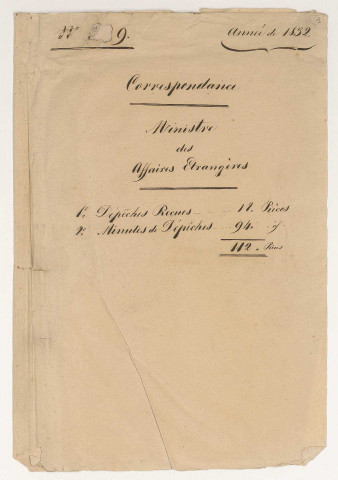 N° 9.
Année de 1832
Correspondance
Ministre
des
Affaires Etrangères
1°. Dépêches Recues 18. Pièces
2°. Minutes de Dépêches 94.
112. Pièces